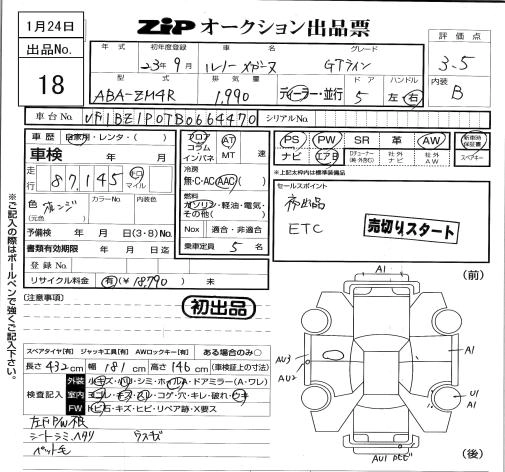 1月24日
ZiP オークション出品票
出品No.
18
年式 初年度登録 車名 グレード
23年9月 ルノー メガーヌ GTライン
評価点
3.5
内装
B
型式 排気量 ドア ハンドル
ABA-ZM4R 1,990 ディーラー・並行 5 左・右
車台No. VF1BZ1P0TB0664470 シリアルNo.
車歴 自家用・レンタ・( )
車検 年 月
走行 87,145 キロ マイル
色 オレンジ カラーNo. 内装色
(元色)
予備検 年 月 日(3・8)No.
書類有効期限 年 月 日
登録No.
リサイクル料金 有(¥18,790) 未
フロア コラム インパネ
AT MT 速
冷房
無・C・AC・AAC( )
燃料
ガソリン・軽油・電気・その他( )
Nox 適合・非適合
乗車定員 5 名
PS PW SR 革 AW
ナビ エアB Dチューナー(純・外含む) 社外ナビ 社外AW
新車時保証書
スペアキー
※上記太枠内は標準装備品
セールスポイント
初出品
ETC
売切りスタート
※ご記入の際はボールペンで強くご記入下さい。
[注意事項]
初出品
スペアタイヤ[有] ジャッキ工具[有] AWロックキー[有] ある場合のみ〇
長さ 432 cm 幅 181 cm 高さ 146 cm (車検証上の寸法)
検査記入
外装 小キズ・凹・シミ・ホイルA・ドアミラー(A・ワレ)
室内 ヨゴレ・キズ・スレ・コゲ・穴・キレ・破れ・ウキ
FW トビ石・キズ・ヒビ・リペア跡・X要ス
シートシミ、ヘタリ ウスキズ
ペット毛
(前)
A1
AU3
AU2
A1
U1
A1
AU1
(後)